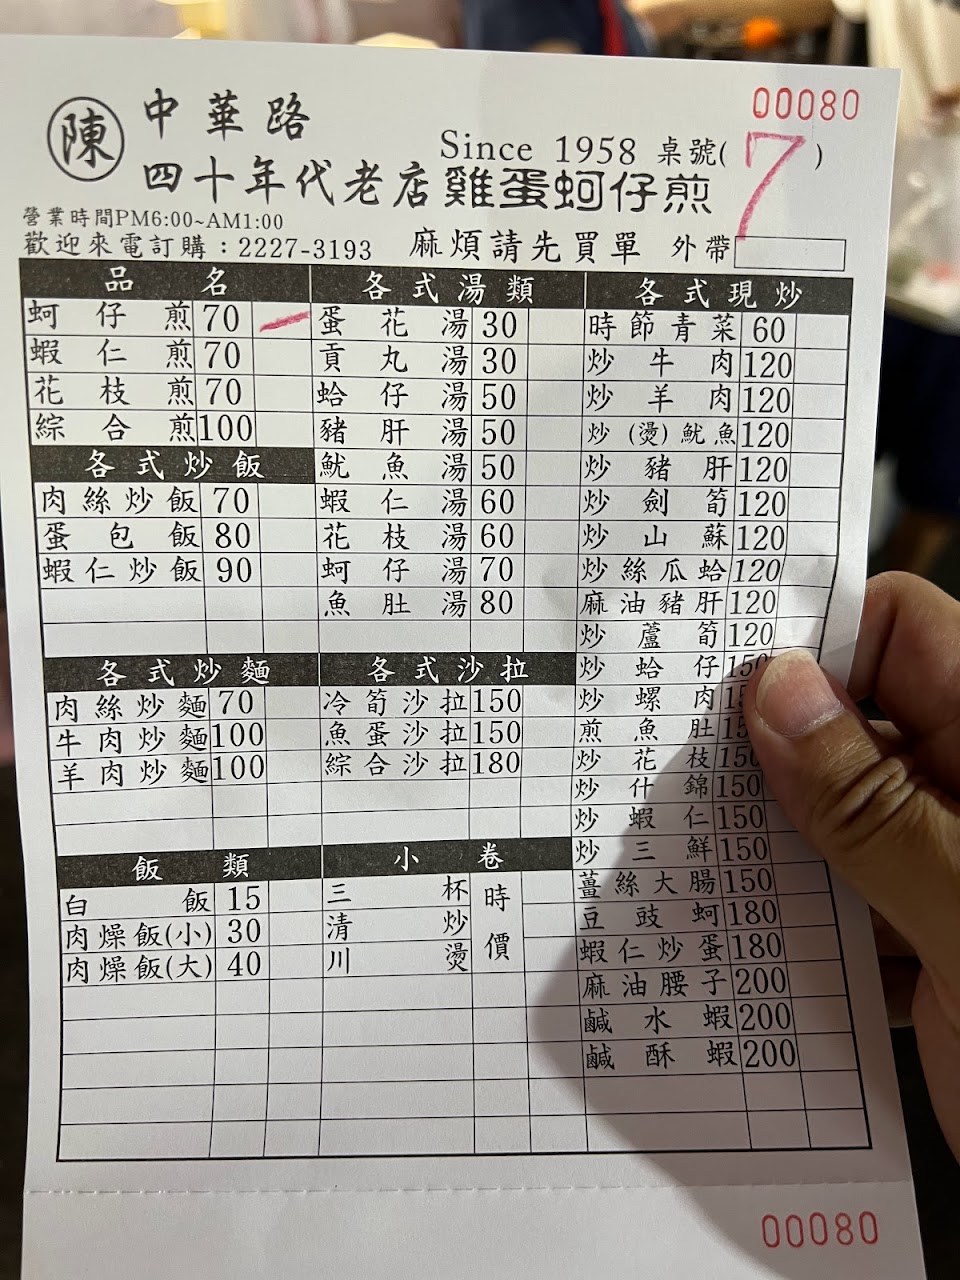 00080
陳
中華路
Since 1958 桌號(7)
四十年代老店雞蛋蚵仔煎
營業時間PM6:00~AM1:00
歡迎來電訂購:2227-3193 麻煩請先買單 外帶
品名
蚵仔煎 70
蝦仁煎 70
花枝煎 70
綜合煎 100
各式炒飯
肉絲炒飯 70
蛋包飯 80
蝦仁炒飯 90
各式炒麵
肉絲炒麵 70
牛肉炒麵 100
羊肉炒麵 100
飯類
白飯 15
肉燥飯(小) 30
肉燥飯(大) 40
各式湯類
蛋花湯 30
貢丸湯 30
蛤仔湯 50
豬肝湯 50
魷魚湯 50
蝦仁湯 60
花枝湯 60
蚵仔湯 70
魚肚湯 80
各式沙拉
冷筍沙拉 150
魚蛋沙拉 150
綜合沙拉 180
小卷
三杯
清炒
川燙
時價
各式現炒
時節青菜 60
炒牛肉 120
炒羊肉 120
炒(燙)魷魚 120
炒豬肝 120
炒劍筍 120
炒山蘇 120
炒絲瓜蛤 120
麻油豬肝 120
炒蘆筍 120
炒蛤仔 150
炒螺肉
煎魚肚
炒花枝 150
炒什錦 150
炒蝦仁 150
炒三鮮 150
薑絲大腸 150
豆豉蚵 180
蝦仁炒蛋 180
麻油腰子 200
鹹水蝦 200
鹹酥蝦 200
00080